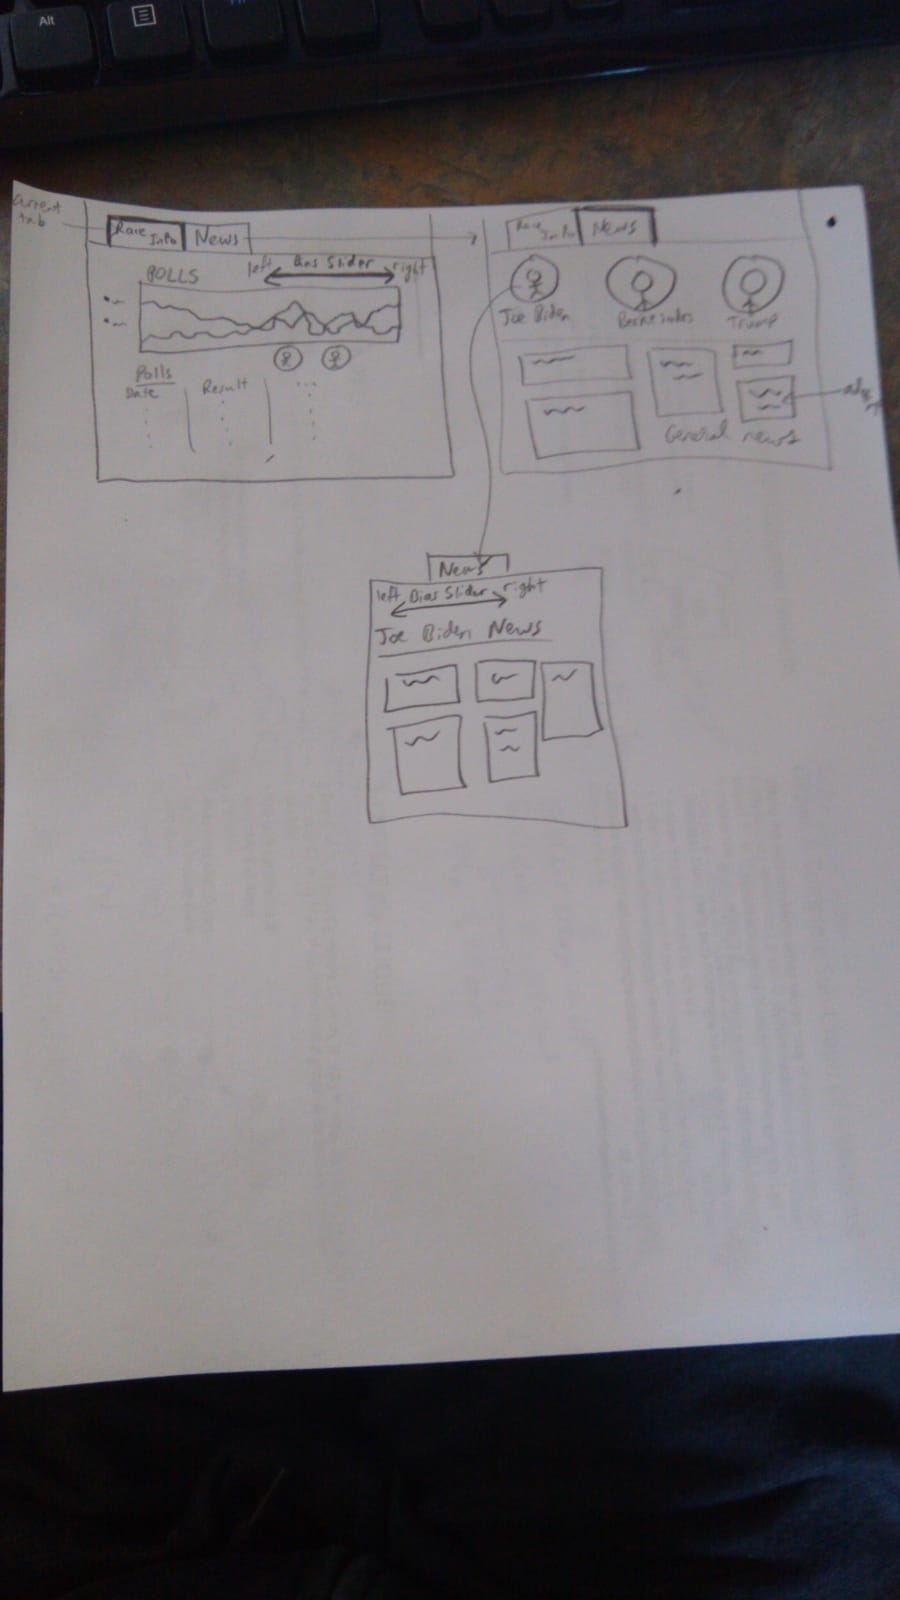 Alt
current
tab
Race
Info
News
POLLS
left Bias Slider right
Polls
Date
Result
...
Race
Info
News
Joe Biden
Trump
General news
News
left Bias Slider right
Joe Biden News